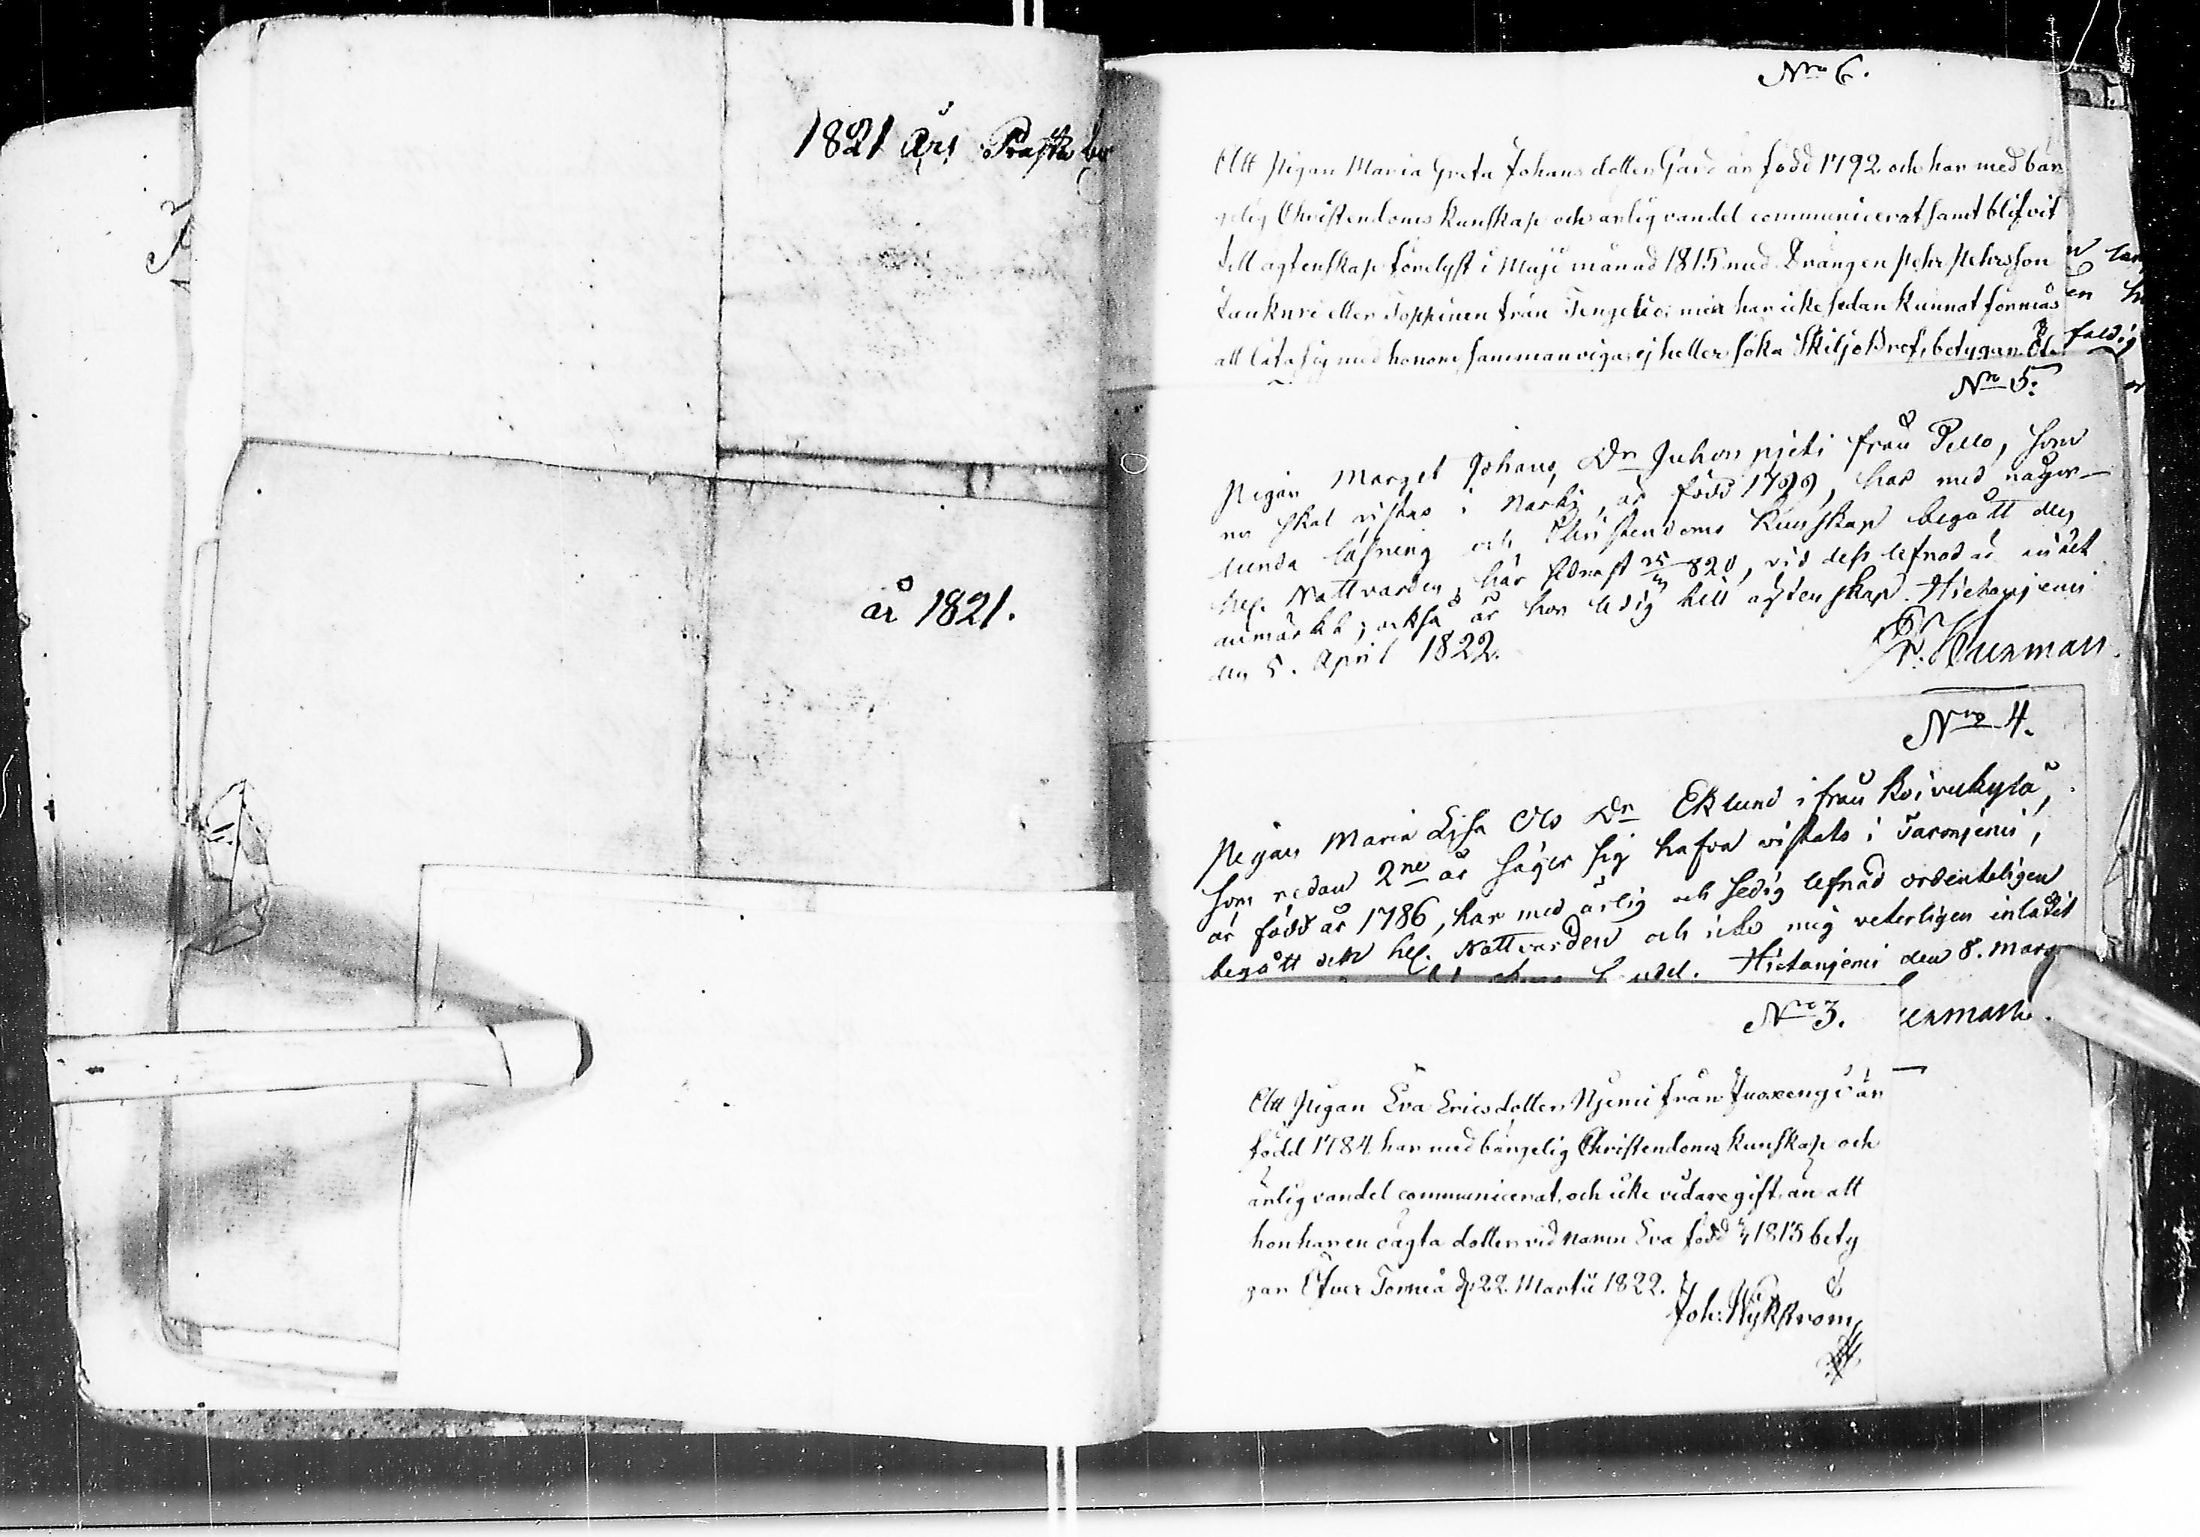 1821 Års Prästbe
år 1821.
Nro 6.
Att Pigan Maria Greta Johans dotter Gard är född 1792 och har med bär
gelig Christendoms kunskap och ärlig vandel communicerat samt blifvit
till ägtenskap förelyst i Maji månad 1815 med Drängen Pehr Pehrsson
eller Toppinen från Tengeliö, men har icke sedan kunnat förmås
att låta sig med honom sammanviga, ej heller söka Skiljobref, betygar. Öf
Nro 5.
Pigan Marget Johans Dr Juhonpjeti från Pello, som
nu skal vistas i Narki, är född 1799, har med någor-
lunda läsning och Christendoms Kunskap begått den
hel. Nattvarden, här sednast 25 820, vid dess lefnad är intet
anmärkt; också är hon ledig till ägtenskap. Hietaniemi
den 5. April 1822.
Nro 4.
Pigan Maria Lisa Ols Dr Eklund ifrån Koivukylä,
som redan 2ne år säger sig hafva vistats i Taronjemi,
är född år 1786, har med ärlig och sedig lefnad ordenteligen
begått den hel. Nattvarden och icke mig veterligen inlåtit
Hietanjemi den 8. Mars
Nro 3.
Att Pigan Eva Ericsdotter Njemi från Juoxengi är
född 1784 har med bärgelig Christendoms kunskap och
ärlig vandel communicerat, och icke vidare gift, än att
hon har en oägta dotter vid namn Eva född 1815 bety
gar Öfver Torneå d. 22 Martii 1822.
Joh: Wykström